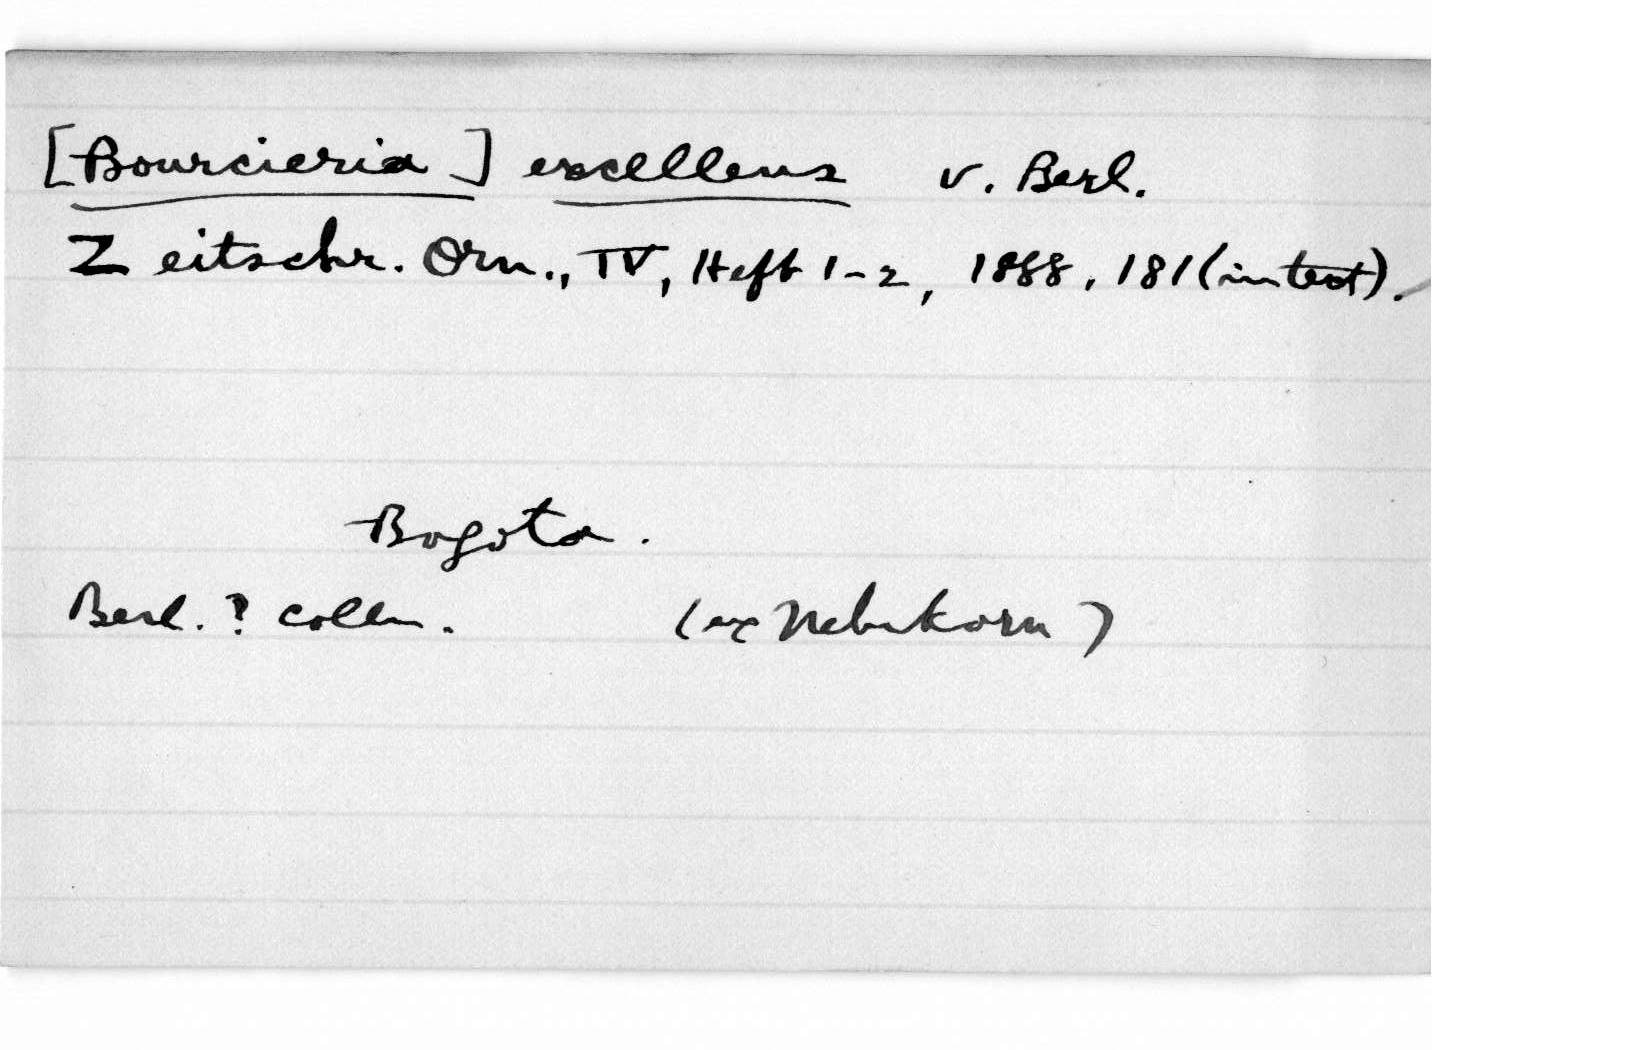 [Bourcieria] excellens v. Berl.
Zeitschr. Orn., IV, Heft 1-2, 1888, 181 (in text).
Bogota.
Berl. ? colln. (ex Nehrkorn)